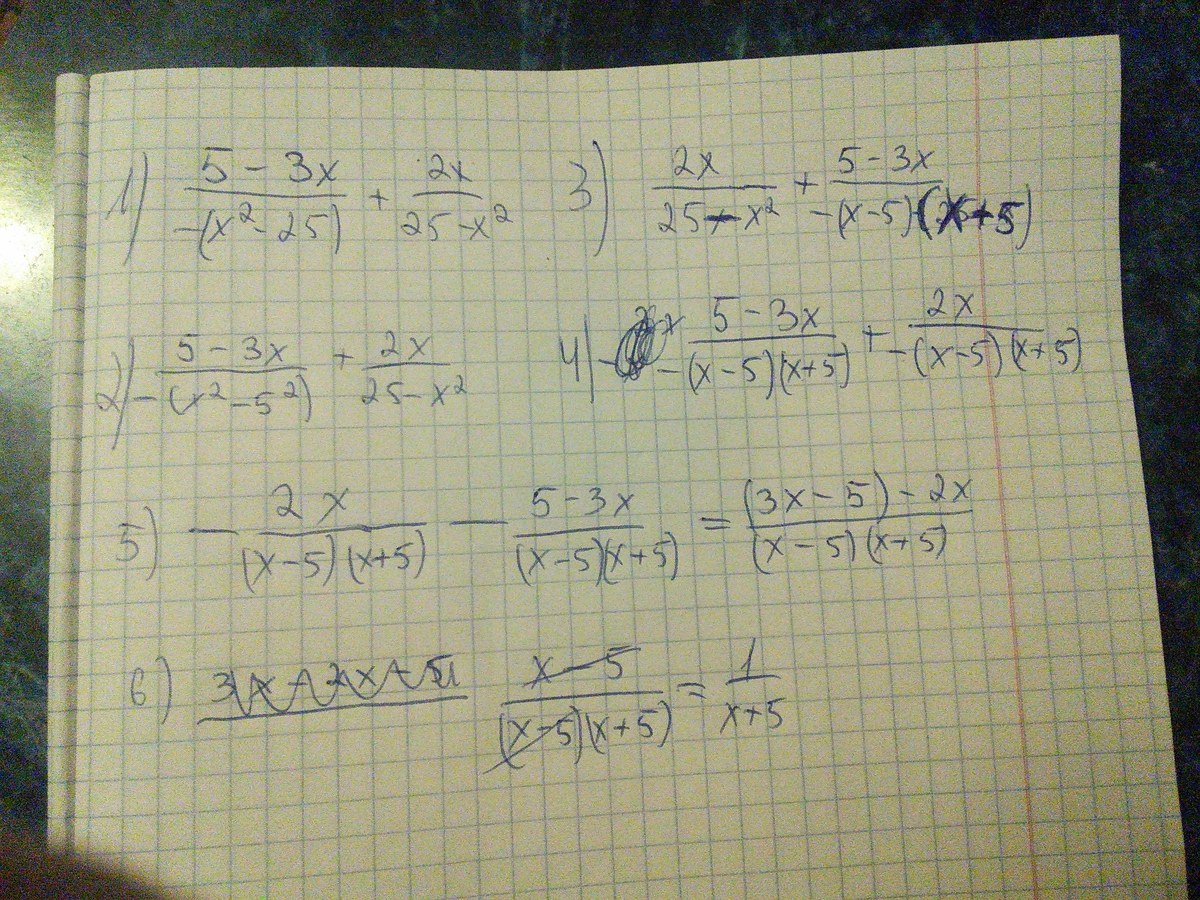 1) (5 - 3x)/(-(x² - 25)) + 2x/(25 - x²)
2) -(5 - 3x)/(x² - 5²) + 2x/(25 - x²)
3) 2x/(25 - x²) + (5 - 3x)/(-(x - 5)(x + 5))
4) (5 - 3x)/(-(x - 5)(x + 5)) + 2x/(-(x - 5)(x + 5))
5) - 2x/((x - 5)(x + 5)) - (5 - 3x)/((x - 5)(x + 5)) = ((3x - 5) - 2x)/((x - 5)(x + 5))
6) (x - 5)/((x - 5)(x + 5)) = 1/(x + 5)